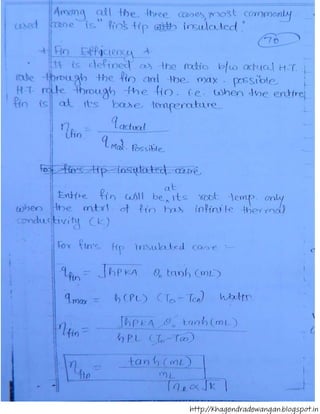 Among all the three cases most commonly
used case is "fin's tip with insulated"
70
* Fin Efficiency *
It is defined as the ratio b/w actual H.T.
rate through the fin and the max. possible
H.T. rate through the fin. i.e. when the entire
fin is at its base temperature.
η_fin = q_actual / q_Max. Possible
For fin's tip insulated case
at
Entire fin will be its root temp. only
when the mtrl of fin has infinite thermal
conductivity (K)
For fin's tip insulated case :-
q_fin = √hPKA θ_o tanh(mL)
q_max = h(PL) (T_o - T_∞) Watts
η_fin = √hPKA θ_o tanh(mL) / hPL (T_o - T_∞)
η_fin = tanh(mL) / mL
η_f ∝ √K
http://khagendradewangan.blogspot.in